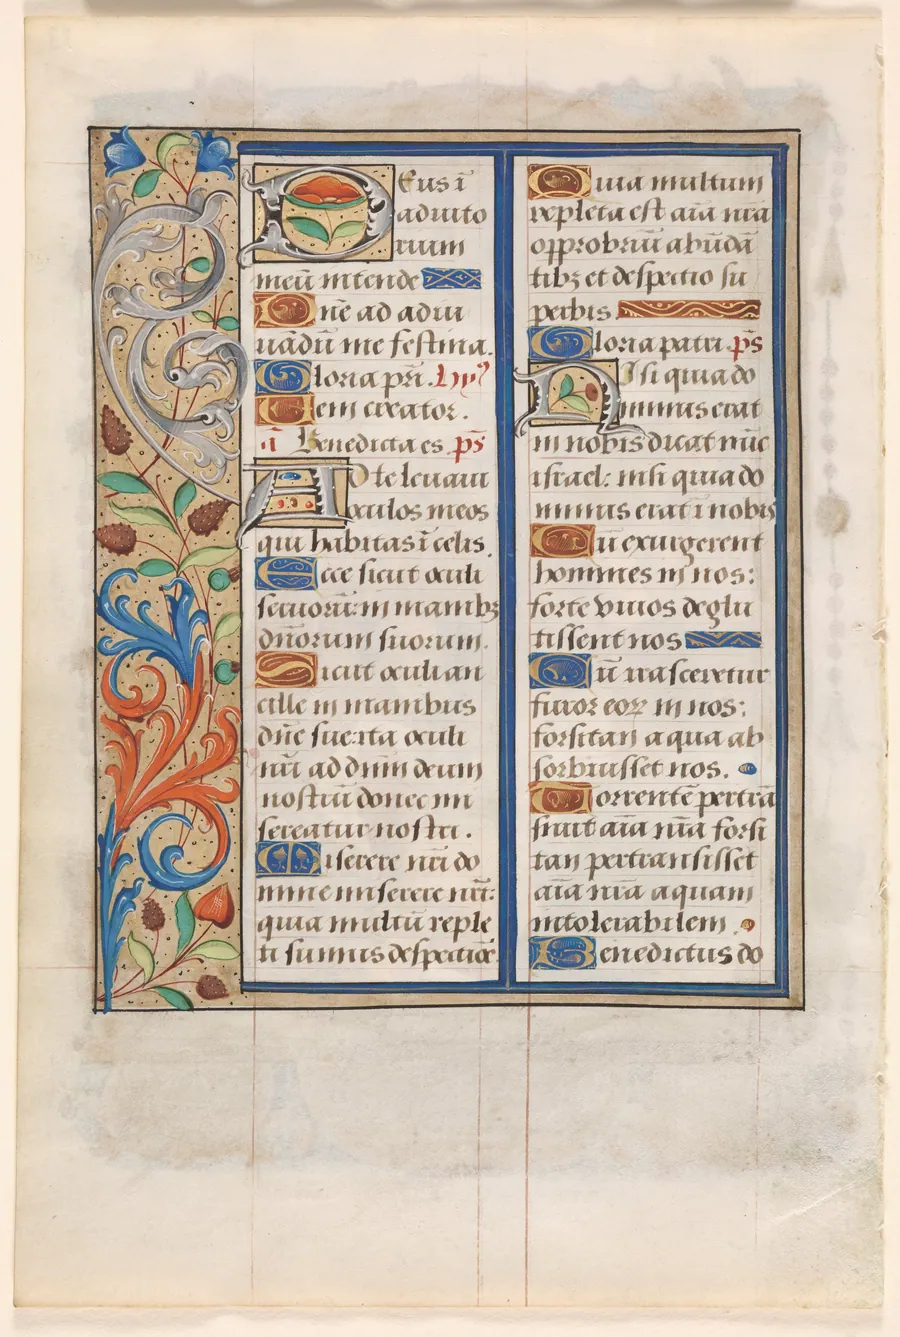 Deus ī
adiuto
rium
meū intende
Dn̄e ad adiu
uādū me festina.
Gloria pr̄i. Ly̅
Mem creator.
ā Benedicta es. ps̄
Ad te leuaui
oculos meos
qui habitas ī celis.
Ecce sicut oculi
seruorū: in manibꝫ
dn̄orum suorum.
Sicut oculi an
cille in manibus
dn̄e sue: ita oculi
nr̄i ad dnm̄ deum
nostrū donec mi
sereatur nostri.
Miserere nr̄i do
mine miserere nr̄i:
quia multū reple
ti sumus despectiōe.
Quia multum
repleta est aīa nr̄a
opprobriū abūdā
tibꝫ et despectio su
perbis.
Gloria patri. ps̄
Nisi quia do
minus erat
in nobis dicat nūc
israel: nisi quia do
minus erat ī nobis
Cū exurgerent
homines in nos:
forte viuos deglu
tissent nos
Cū irasceretur
furor eoꝝ in nos:
forsitan aqua ab
sorbuisset nos.
Torrentē pertrā
siuit aīa nr̄a forsi
tan pertransisset
aīa nr̄a aquam
intolerabilem.
Benedictus do